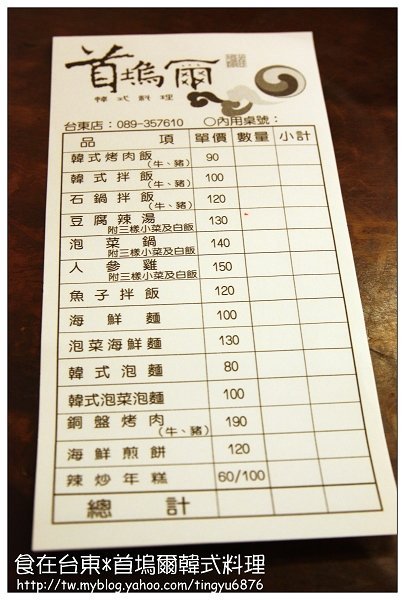 首塢爾
韓式料理
台東店：089-357610 ○內用桌號：
品項 單價 數量 小計
韓式烤肉飯（牛、豬） 90
韓式拌飯（牛、豬） 100
石鍋拌飯（牛、豬） 120
豆腐辣湯 130
附三樣小菜及白飯
泡菜鍋 140
附三樣小菜及白飯
人參雞 150
附三樣小菜及白飯
魚子拌飯 120
海鮮麵 100
泡菜海鮮麵 130
韓式泡麵 80
韓式泡菜泡麵 100
銅盤烤肉（牛、豬） 190
海鮮煎餅 120
辣炒年糕 60/100
總計
食在台東*首塢爾韓式料理
http://tw.myblog.yahoo.com/tingyu6876